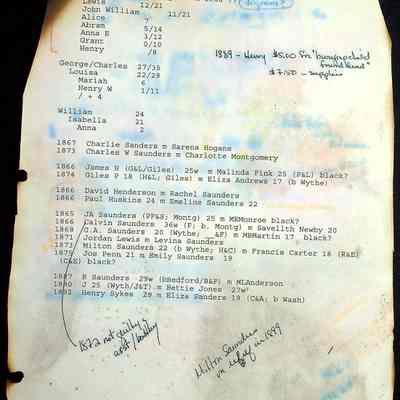 Lewis 12/21
John William 11/21
Alice 7
Abram 5/14
Anna E 3/12
Grant 0/10
Henry /8
1889 - Henry $5.00 for "burying child
found dead"
$7.50 - supplies
George/Charles 27/35
Louisa 22/29
Mariah 6
Henry W 1/11
/ + 4
William 24
Isabella 21
Anna 2
1867 Charlie Sanders m Sarena Hogans
1873 Charles W Saunders m Charlotte Montgomery
1866 James H (G&L/Giles) 25w m Malinda Pink 25 (P&L) black?
1874 Giles P 18 (H&L; Giles) m Eliza Andrews 17 (b Wythe)
1866 David Henderson m Rachel Saunders
1866 Paul Huskins 24 m Emeline Saunders 22
1865 JA Saunders (PP&S; Montg) 25 m MEMonroe black?
1866 Calvin Saunders 36w (F; b. Montg) m Savellth Newby 20
1869 G.A. Saunders 20 (Wythe; __&F) m MEMartin 17 black?
1871 Jordan Lewis m Levina Saunders
1872 Milton Saunders 22 (b Wythe; H&C) m Francis Carter 18 (R&E)
1875 Jos Penn 21 m Emily Saunders 19
(C&E) black?
1887 B Saunders 29w (bBedford/B&F) m MLAnderson
1890 J 25 (Wyth/J&T) m Bettie Jones 27w?
1892 Henry Sykes 29 m Eliza Sanders 19 (C&A; b Wash)
1872 not guilty
Milton Saunders
in 1899